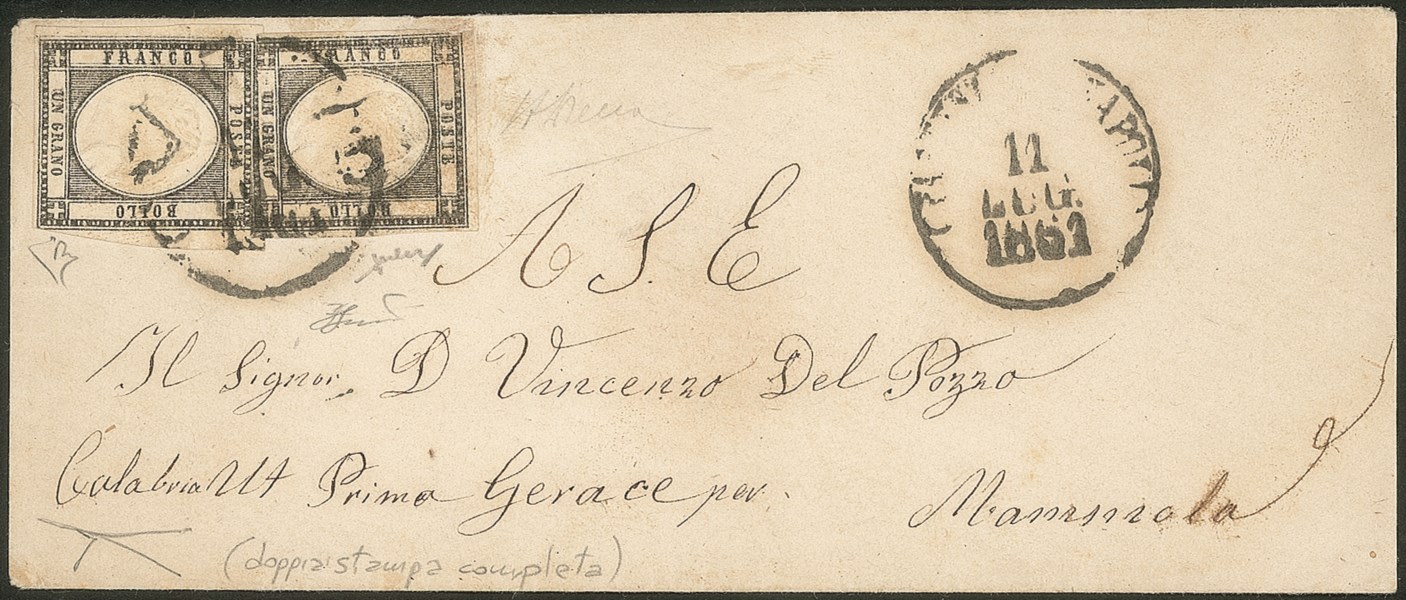 FRANCO
POSTE
BOLLO
UN GRANO
FRANCO
POSTE
BOLLO
UN GRANO
11
LUG.
1861
A S E
Il Signor D Vincenzo Del Pozzo
Calabria Ult Prima Gerace per Mammola
(doppia stampa completa)